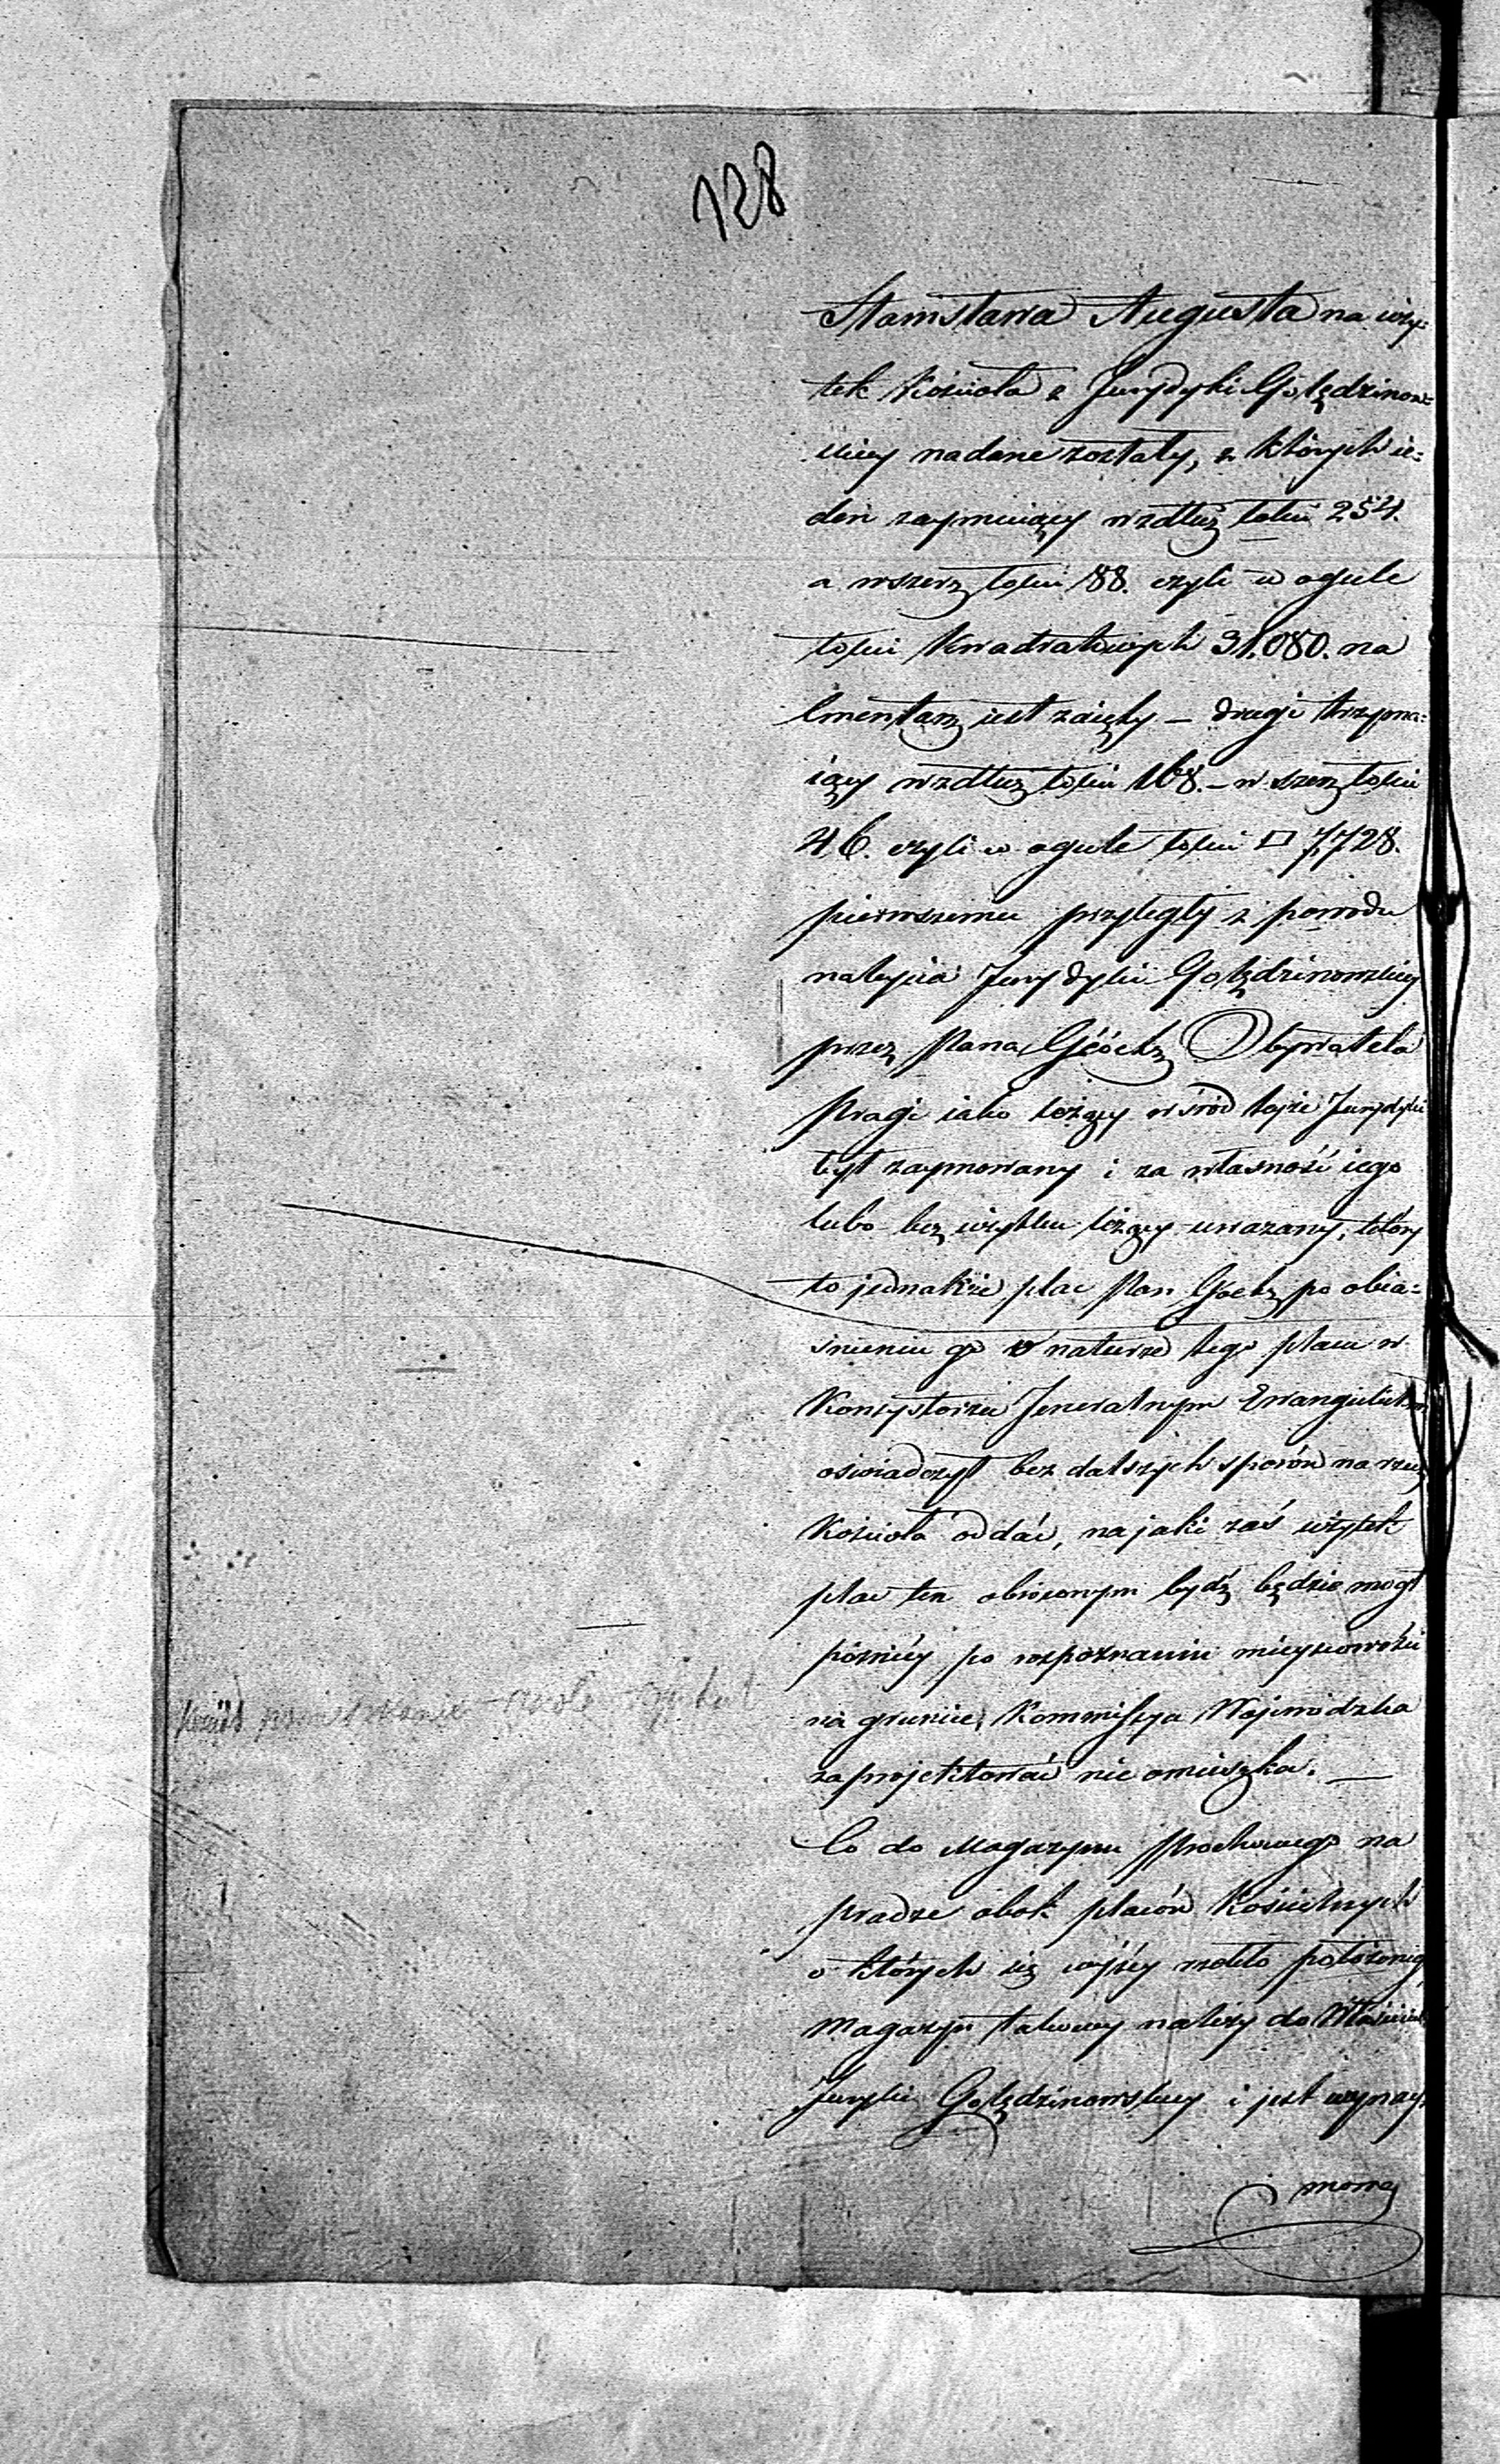 128
Stanisława Augusta na uży-
tek Kościoła z Jurydyki Golędzinow-
skiey nadane zostały, z których ie-
den zaymuiący wzdłuż łokci 254.
a wszerz łokci 88. czyli w ogule
łokci Kwadratowych 31,080. na
Cmentarz iest zaięty – drugi trzyma-
iący wzdłuż łokci 168. – w szerz łokci
46. czyli w ogule łokci □ 7,728.
pierwszemu przyległy z powodu
nabycia Jurydyki Golędzinowskiey
przez Pana Göetz Obywatela
Pragi iako leżący wśrod teyże Jurydyki
był zaymowany i za własność iego
lubo bez użytku leżący uważany, który
to jednakże plac Pan Goetz po obia-
śnieniu go o naturze tego placu w
Konsystorzu Jeneralnym Ewangielickim
oświadczył bez dalszych sporów na rzecz
Kościoła oddać, na jaki zaś użytek
plac ten obróconym bydź będzie mogł
pózniéy po rozpoznaniu mieyscowości
na gruncie, Kommissya Wojewodzka
zaprojektować nie omieszka. —
Co do Magazynu Prochowego na
Pradze obok placów Kościelnych
o których się wyżey rzekło położonego
Magazyn takowy należy do Właściciela
Juryki Golędzinowskiey i jest wynay-
mowa